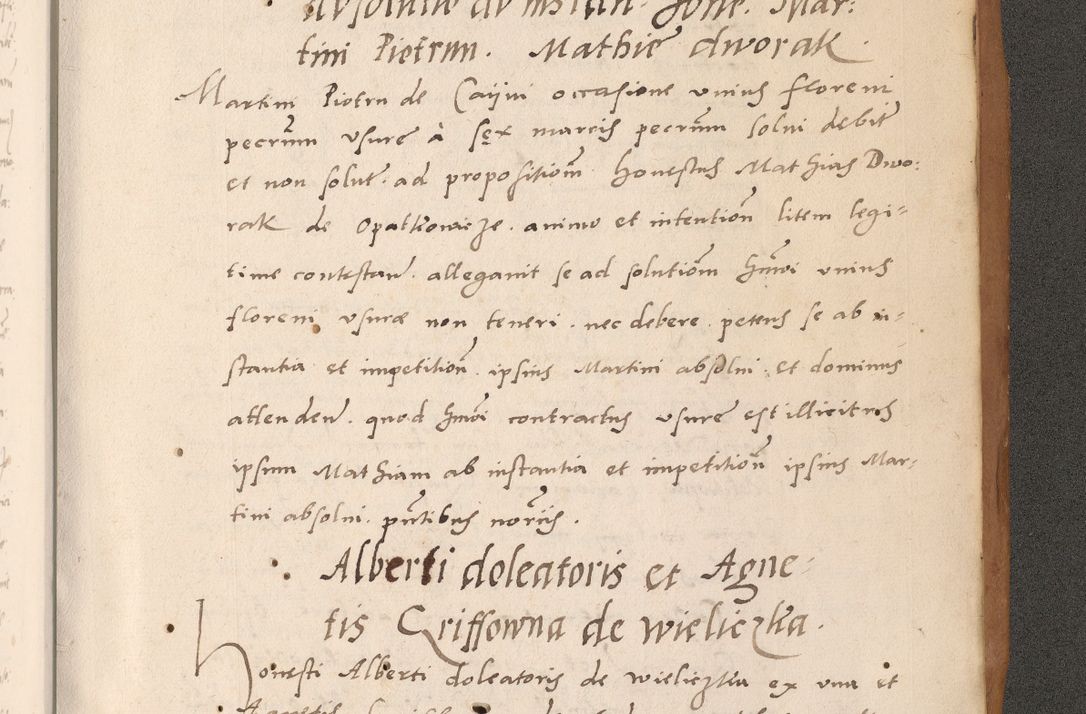 absolutio ab instan. hone. Mar:
tini Piotrun. Mathie dworak.
Martini Piotrn de Caijni occasione unius floreni
pecruum usure à sex marcis pecruum solui debit
et non solut. ad propositiom honestus Mathias Dwo:
rak de Opatkowicze. animo et intention litem legi-
time contestan. allegauit se ad solutiom hmoi unius
floreni usuræ non teneri. nec debere. petens se ab in-
stantia et impetition. ipsius Martini absolui. et dominus
attenden. quod hmoi contractus usure est illicitus
ipsum Mathiam ab instantia et impetition ipsius Mar-
tini absolui. pntibus norciis.
Alberti doleatoris et Agne-
tis Griffowna de wieliczka.
Honesti Alberti doleatoris de wieliczka ex una et
Agnetis